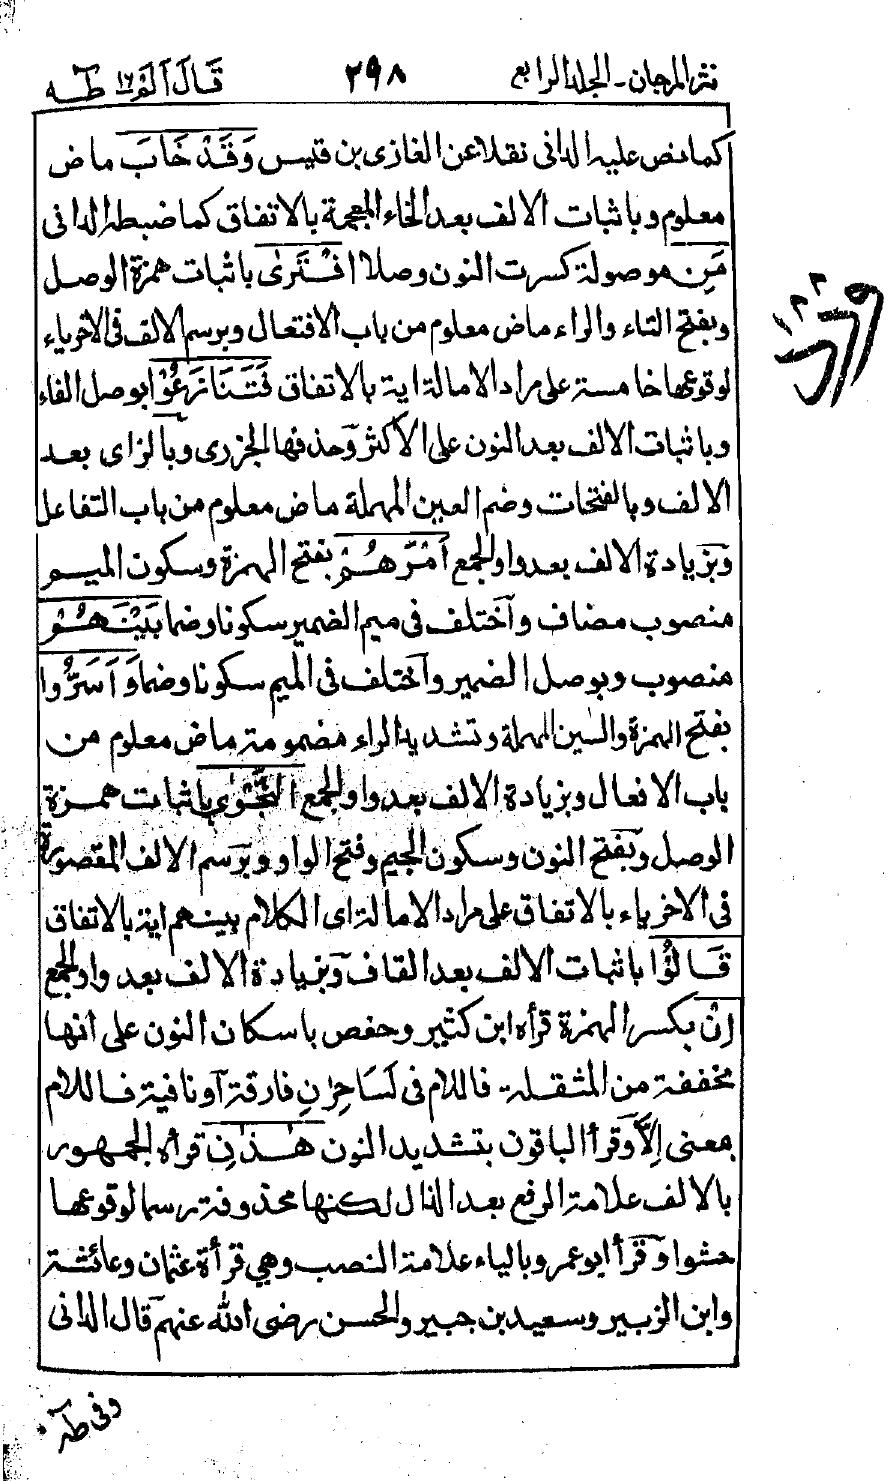 نثر المرجان - الجلد الرابع ٣٩٨ قَالَ اَلَمْ ١٦ طٰهٰ
كما نص عليه الدانى نقلا عن الغازى بن قيس وَقَدْ خَابَ ماض
معلوم وباثبات الالف بعد الخاء المعجمة بالاتفاق كما ضبطه الدانى
مَنِ موصولة كسرت النون وصلا افْتَرٰى باثبات همزة الوصل
وبفتح التاء والراء ماض معلوم من باب الافتعال وبرسم الالف فى الاخر ياء
لوقوعها خامسة على مراد الامالة اية بالاتفاق فَتَنَازَعُوْا بوصل الفاء
وباثبات الالف بعد النون على الاكثر وحذفها الجزرى وبالزاى بعد
الالف وبالفتحات وضم العين المهملة ماض معلوم من باب التفاعل
وبزيادة الالف بعد واو الجمع اَمْرَهُمْ بفتح الهمزة وسكون الميم
منصوب مضاف واختلف فى ميم الضمير سكونا وضما بَيْنَهُمْ
منصوب وبوصل الضمير واختلف فى الميم سكونا وضما وَاَسَرُّوا
بفتح الهمزة والسين المهملة وتشديد الراء مضمومة ماض معلوم من
باب الافعال وبزيادة الالف بعد واو الجمع النَّجْوٰى باثبات همزة
الوصل وبفتح النون وسكون الجيم وفتح الواو وبرسم الالف المقصورة
فى الاخر ياء بالاتفاق على مراد الامالة اى الكلام بينهم اية بالاتفاق
قَالُوْا باثبات الالف بعد القاف وبزيادة الالف بعد واو الجمع
اِنْ بكسر الهمزة قرأه ابن كثير وحفص باسكان النون على انها
مخففة من المثقلة فاللام فى لَسَاحِرٰنِ فارقة او نافية فاللام
بمعنى اِلَّا وقرأ الباقون بتشديد النون هٰذٰنِ قرأه الجمهور
بالالف علامة الرفع بعد الذال لكنها محذوفة رسما لوقوعها
حشوا وقرأ ابو عمرو بالياء علامة النصب وهي قرأة عثمان وعائشة
وابن الزبير وسعيد بن جبير والحسن رضى الله عنهم قال الدانى
وفى طه